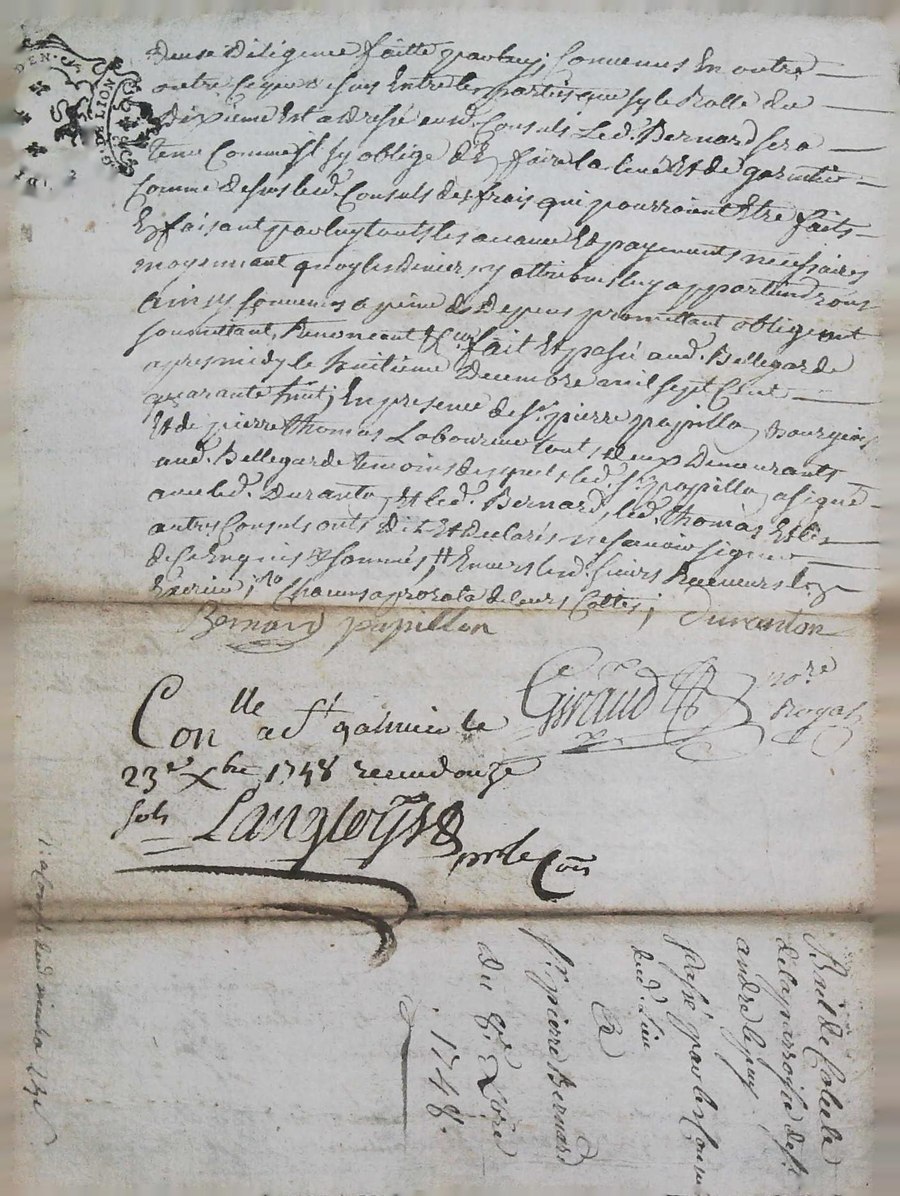 DEN.
G. DE LION
deue diligence faitte par luy, Convenus En outre
outre Ce que desus Entre les parties que sy le Rolle du
Dixieme Est adressé aud. Consuls Led. Bernard sera
tenu Comme Il sy oblige d'En faire la levé Et de garentir
Comme desus led. Consuls des frais qui pourroient Etre faits
En faisant par luy touts les avance Et payements necessaires
moyennant quoy les denier y attribues luy appartiendront
Ainsy Convenus a peine de Depens promettant obligent
soumettant, Renoncant &c fait Et passé aud. Bellegarde
apres midy le huitieme Decembre mil sept Cent
quarante huit, En presence de Sr. pierre papillon Bourgeois
Et de pierre thomas Laboureur touts deux Demeurants
aud. Bellegarde temoins desquels led. Sr. papillon a signé
avec led. Duranton, Et led. Bernard, led. thomas Et les
autres Consuls onts dit Et declarés ne savoir signer
de Ce Enquis & sommés, # Envers led. sieurs Receveurs
Chacuns a prorata de leurs Cottes;
Bernard papillon Duranton
Giraud nore
Royal
Conlle a St galmier le
23e Xbre 1748 receu douze
sols Langloys
Bail de Colecte
de la parroisse de St.
andre le puy
passé par les Consuls
dud. Lieu
A
Sr. pierre Bernard
Du 8e Xbre
1748.